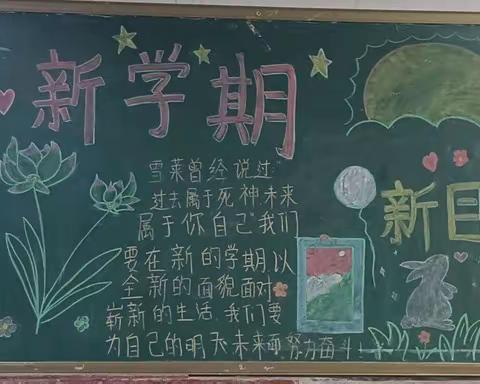 新学期
雪莱曾经说过:"
过去属于死神,未来
属于你自己"我们
要在新的学期,以
全新的面貌面对
崭新的生活,我们要
为自己的明天未来而努力奋斗!
新日